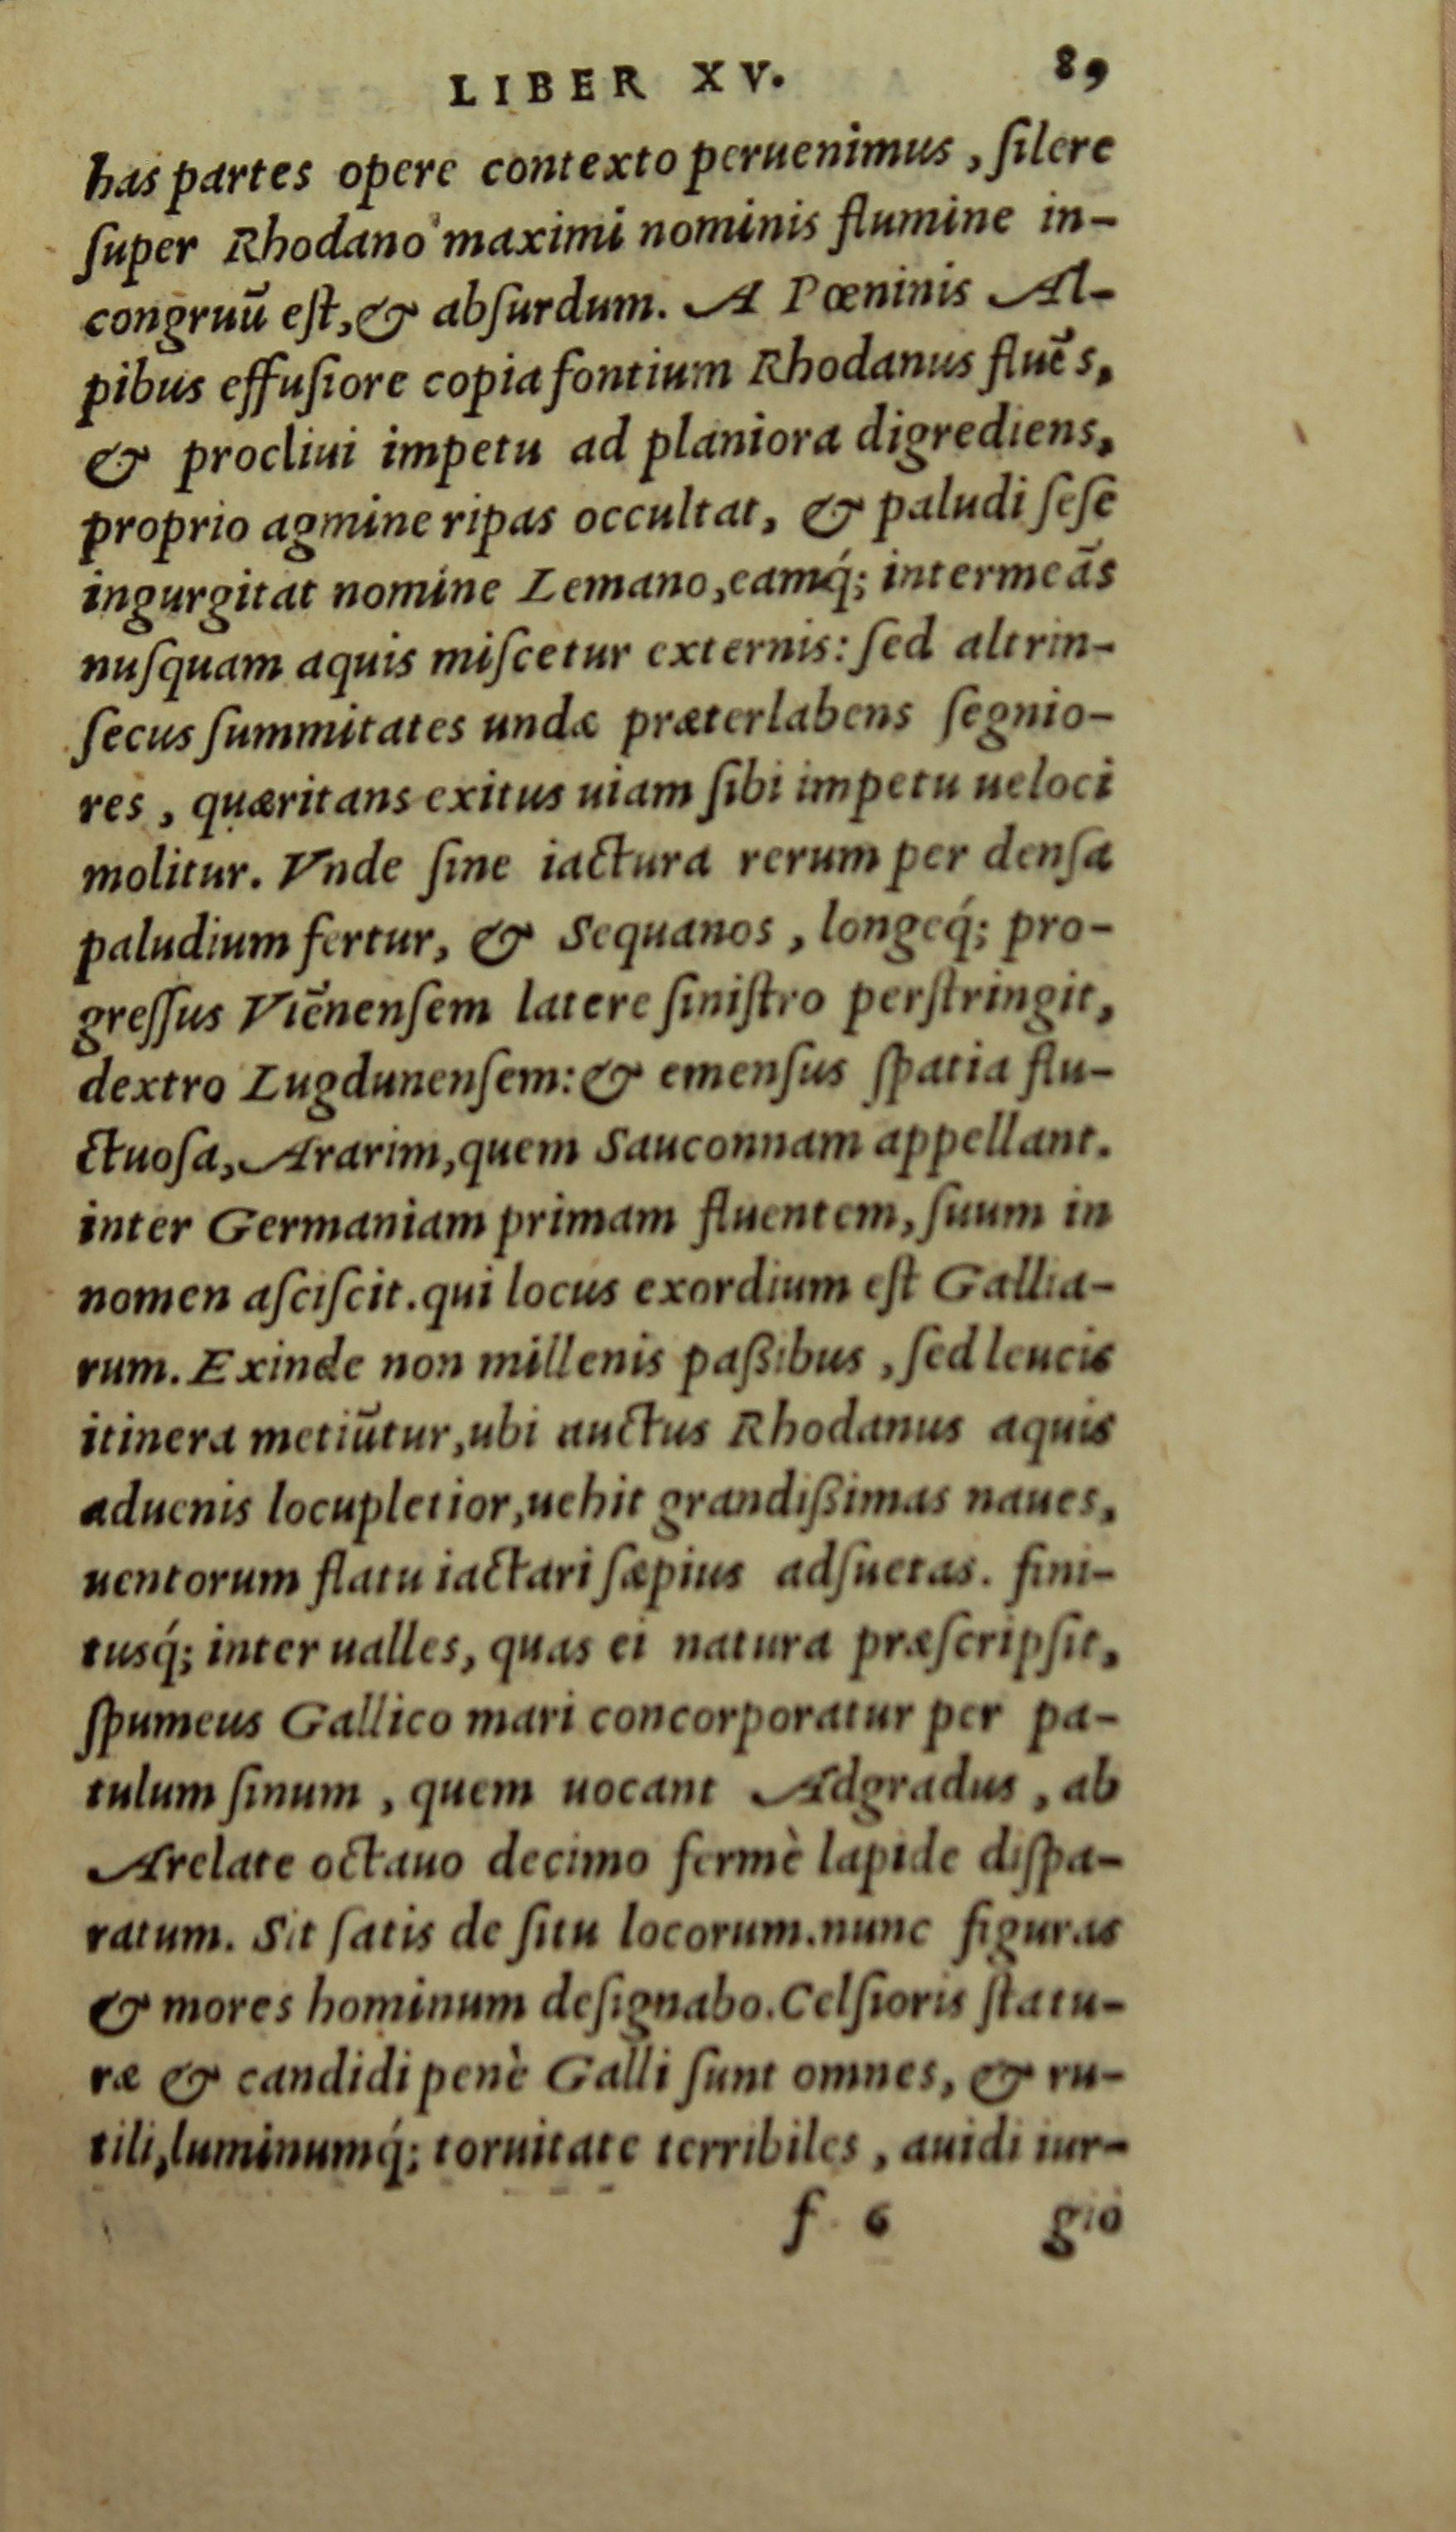 LIBER XV. 89
has partes opere contexto peruenimus, ſilere
ſuper Rhodano maximi nominis flumine in-
congruū eſt, & abſurdum. A Pœninis Al-
pibus effuſiore copia fontium Rhodanus fluēs,
& procliui impetu ad planiora digrediens,
proprio agmine ripas occultat, & paludi ſeſe
ingurgitat nomine Lemano, eamq́; intermeās
nuſquam aquis miſcetur externis: ſed altrin-
ſecus ſummitates undæ præterlabens ſegnio-
res, quæritans exitus uiam ſibi impetu ueloci
molitur. Vnde ſine iactura rerum per denſa
paludium fertur, & Sequanos, longeq́; pro-
greſſus Viēnenſem latere ſiniſtro perſtringit,
dextro Lugdunenſem: & emenſus ſpatia flu-
ctuoſa, Ararim, quem Sauconnam appellant.
inter Germaniam primam fluentem, ſuum in
nomen aſciſcit. qui locus exordium eſt Gallia-
rum. Exinde non millenis paßibus, ſed leucis
itinera metiūtur, ubi auctus Rhodanus aquis
aduenis locupletior, uehit grandißimas naues,
uentorum flatu iactari ſæpius adſuetas. fini-
tusq́; inter ualles, quas ei natura præſcripſit,
ſpumeus Gallico mari concorporatur per pa-
tulum ſinum, quem uocant Adgradus, ab
Arelate octauo decimo fermè lapide diſpa-
ratum. Sit ſatis de ſitu locorum. nunc figuras
& mores hominum deſignabo. Celſioris ſtatu-
ræ & candidi penè Galli ſunt omnes, & ru-
tili, luminumq́; toruitate terribiles, auidi iur-
f 6 gio